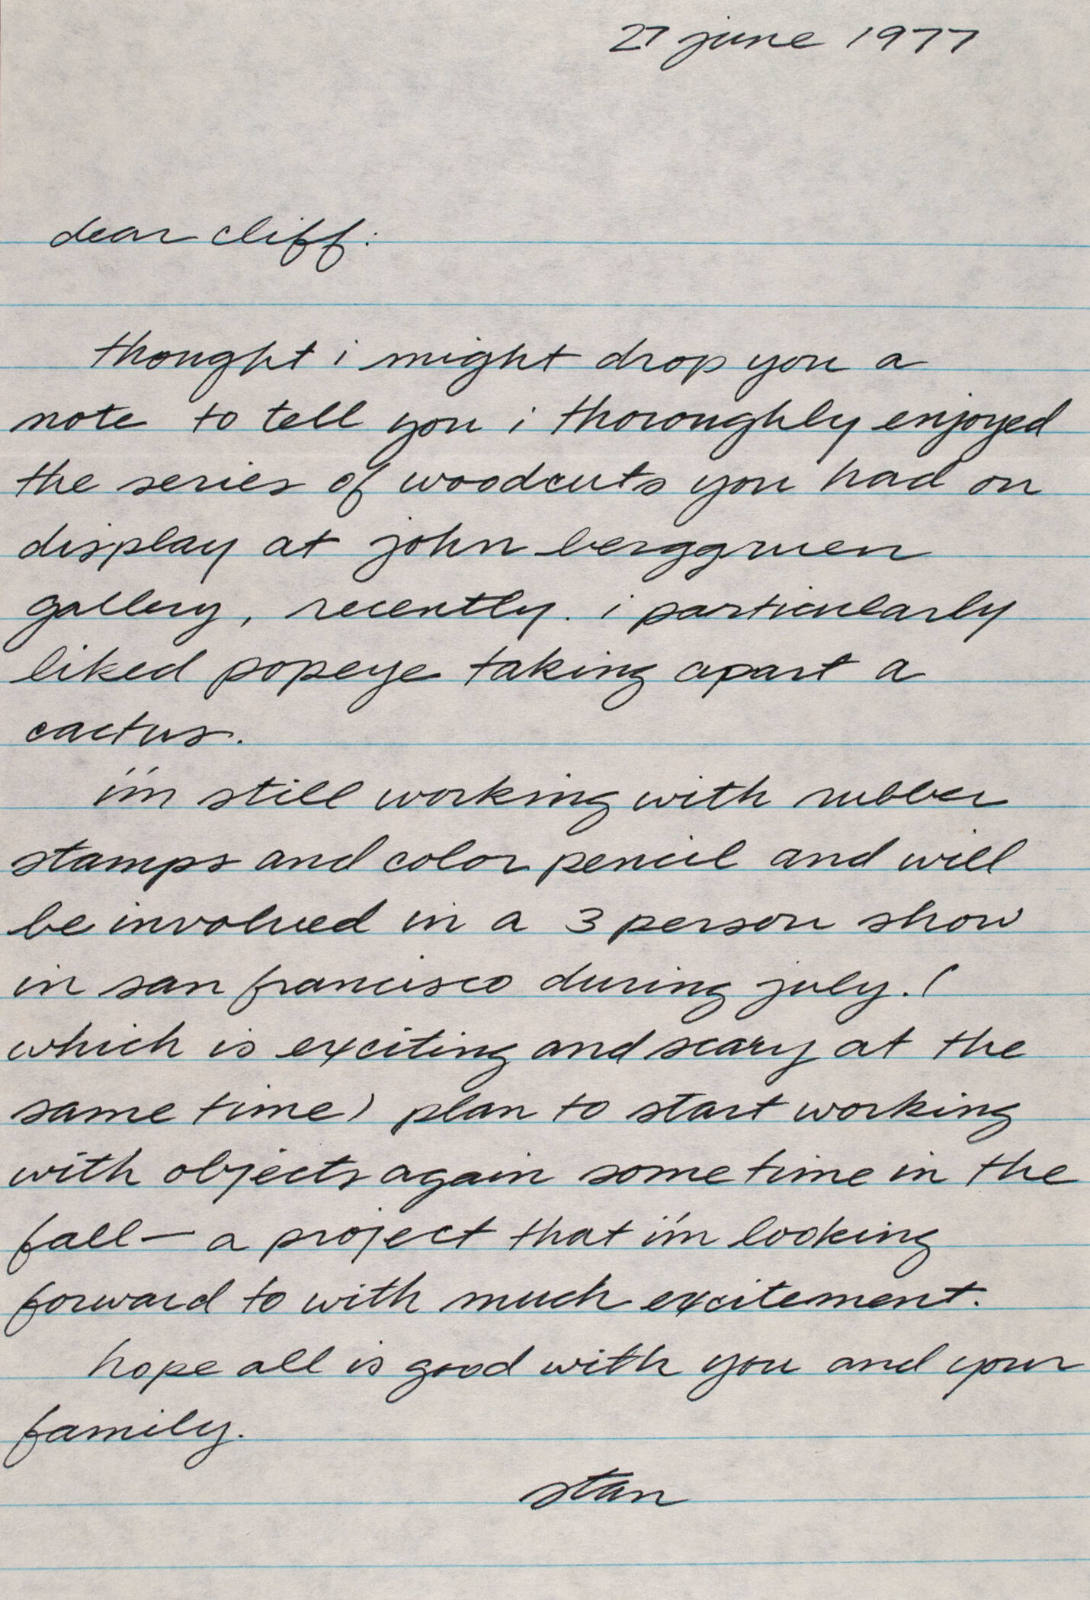 27 june 1977
dear cliff:
thought i might drop you a
note to tell you i thoroughly enjoyed
the series of woodcuts you had on
display at john berggruen
gallery, recently. i particularly
liked popeye taking apart a
cactus.
i'm still working with rubber
stamps and color pencil and will
be involved in a 3 person show
in san francisco during july. (
which is exciting and scary at the
same time) plan to start working
with objects again some time in the
fall — a project that i'm looking
forward to with much excitement.
hope all is good with you and your
family.
stan